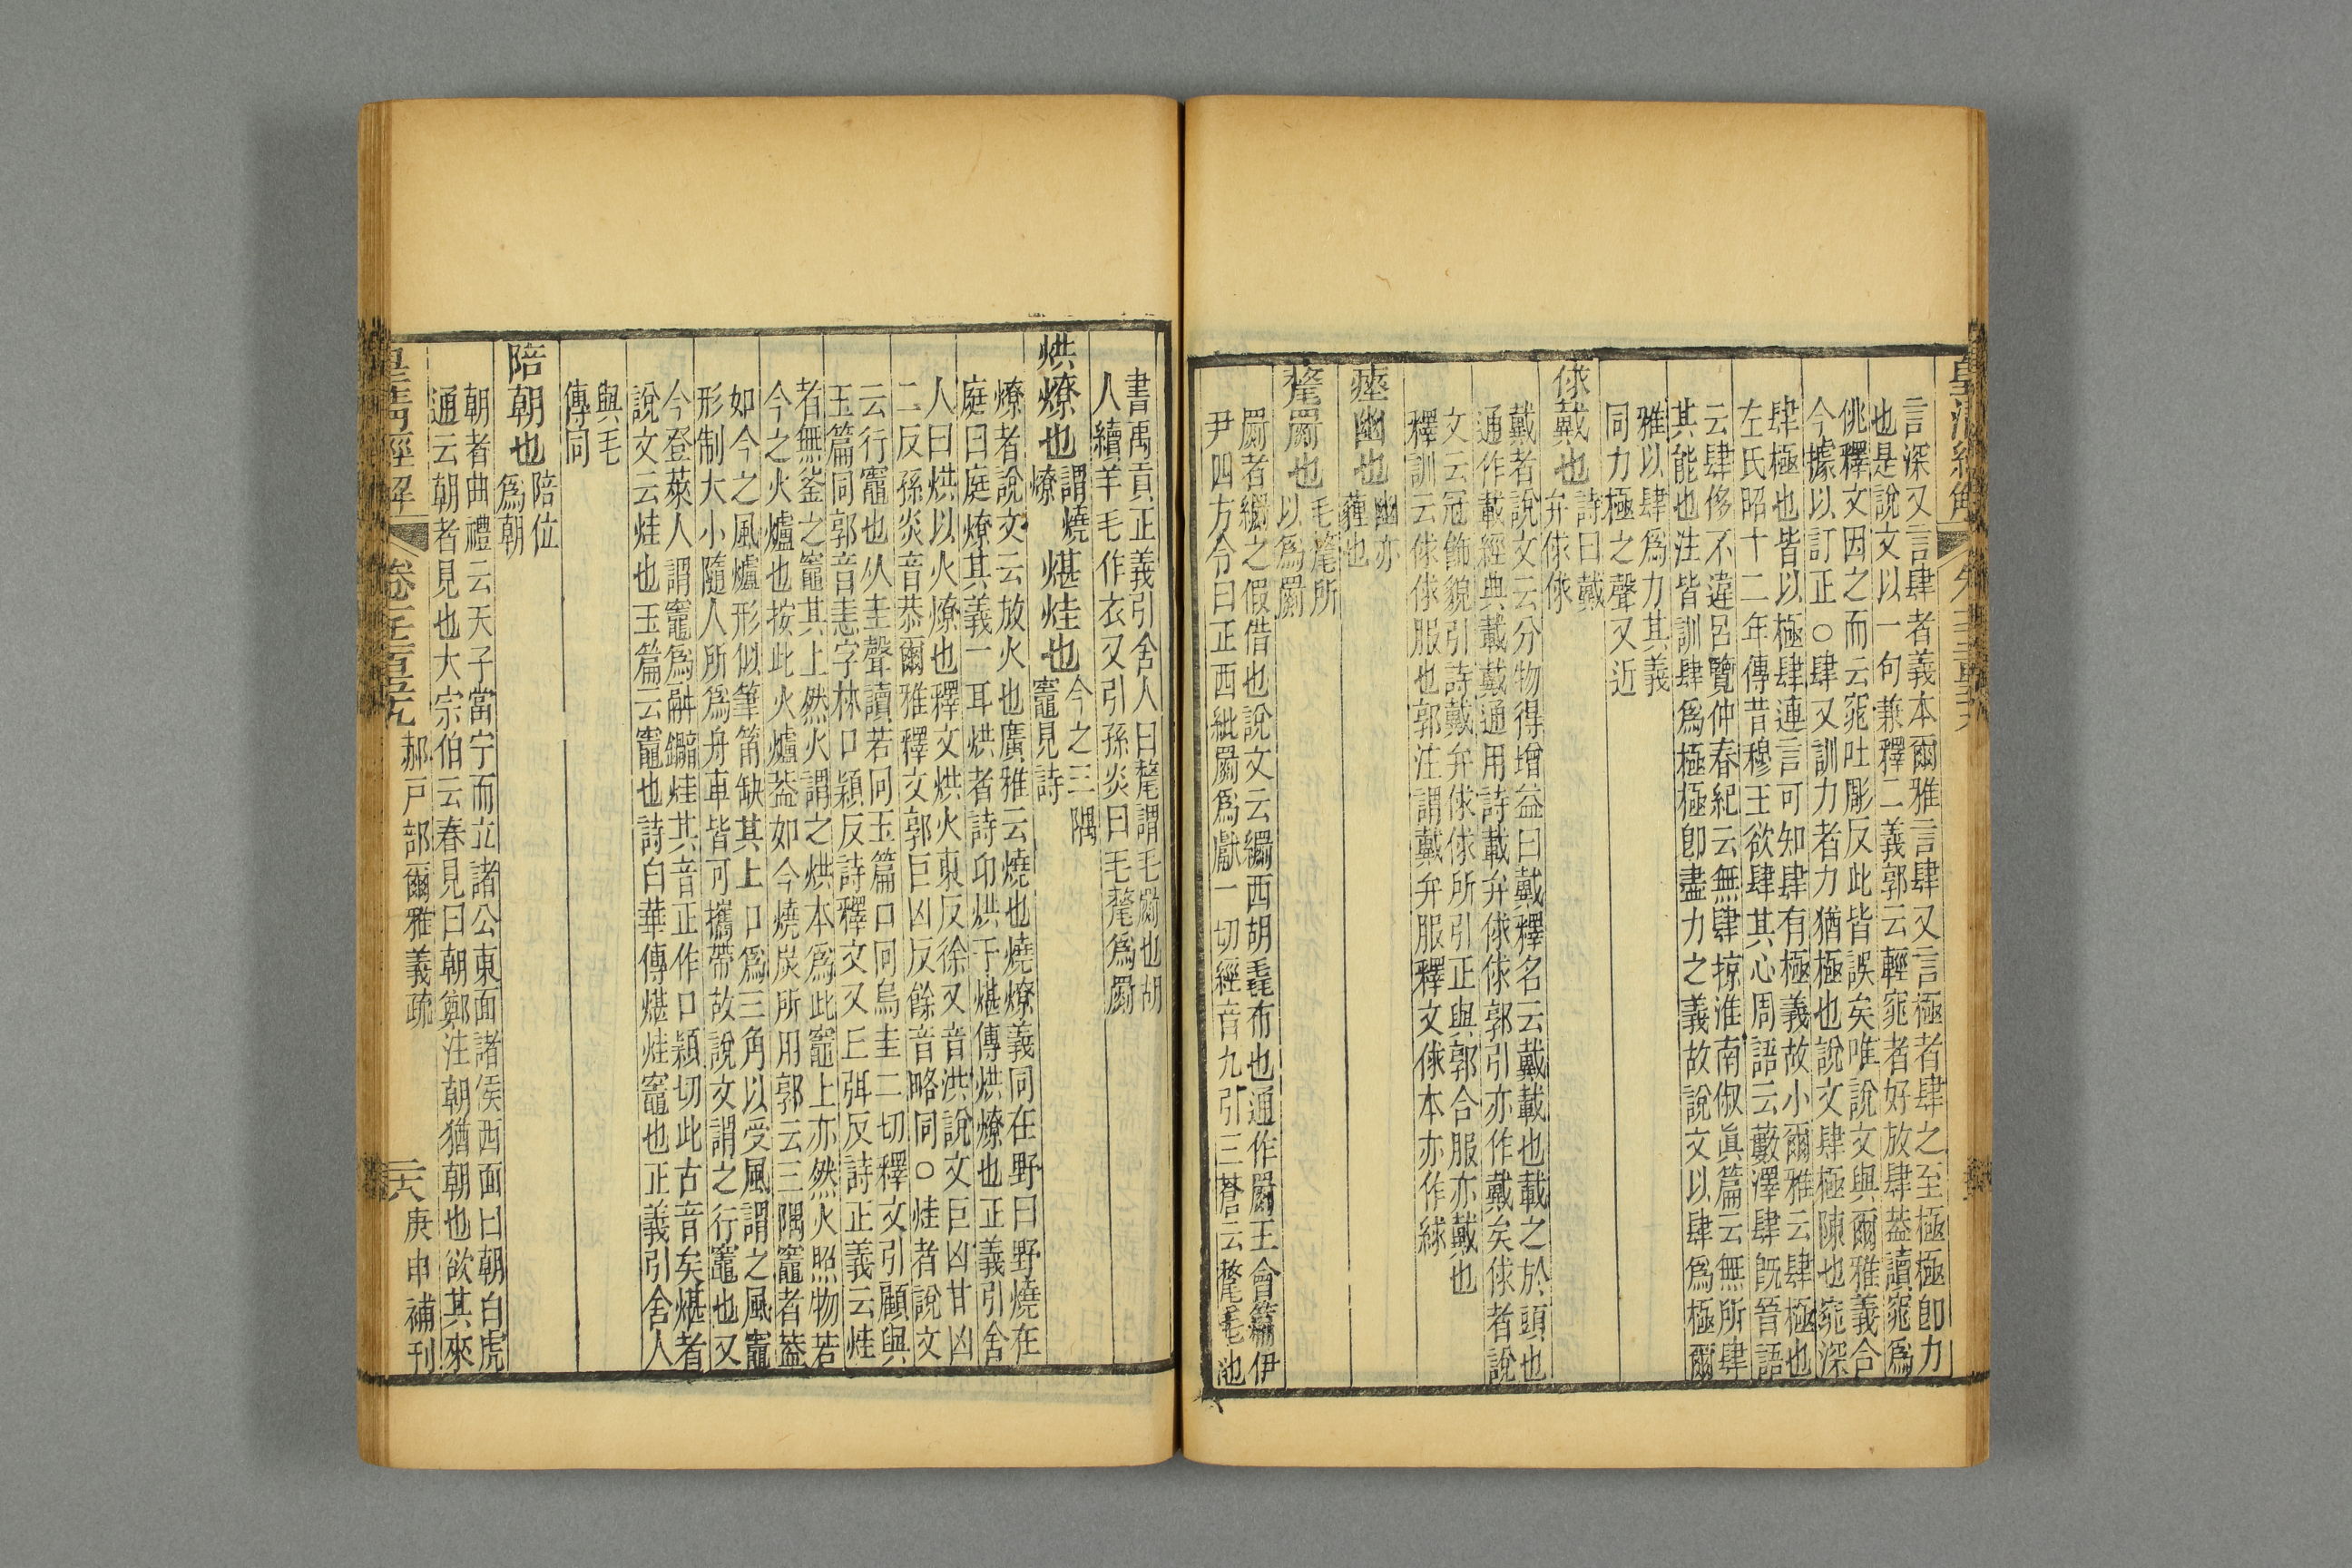 言深又言肆者義本爾雅言肆又言極者肆之至極極卽力
也是說文以一句兼釋二義郭云輕窕者好放肆葢讀窕爲
佻釋文因之而云窕吐彫反此皆誤矣唯說文與爾雅義合
今據以訂正○肆又訓力者力猶極也說文肆極陳也窕深
肆極也皆以極肆連言可知肆有極義故小爾雅云肆極也
左氏昭十二年傳昔穆王欲肆其心周語云藪澤肆旣晉語
云肆侈不違呂覽仲春紀云無肆掠淮南俶眞篇云無所肆
其能也注皆訓肆爲極極卽盡力之義故說文以肆爲極爾
雅以肆爲力其義
同力極之聲又近
俅戴也
詩曰戴
弁俅俅
戴者說文云分物得增益曰戴釋名云戴載也載之於頭也
通作載經典載戴通用詩載弁俅俅郭引亦作戴矣俅者說
文云冠飾貌引詩戴弁俅俅所引正與郭合服亦戴也
釋訓云俅俅服也郭注謂戴弁服釋文俅本亦作絿
瘞幽也
幽亦
薶也
氂罽也
毛氂所
以爲罽
罽者繝之假借也說文云繝西胡毳布也通作罽王會篇伊
尹四方令曰正西紕罽爲獻一切經音九引三蒼云氂毛也
書禹貢正義引舍人曰氂謂毛罽也胡
人續羊毛作衣又引孫炎曰毛氂爲罽
烘燎也
謂燒
燎
煁烓也
今之三隅
竈見詩
燎者說文云放火也廣雅云燒也燒燎義同在野曰野燒在
庭曰庭燎其義一耳烘者詩卬烘于煁傳烘燎也正義引舍
人曰烘以火燎也釋文烘火東反徐又音洪說文巨凶甘凶
二反孫炎音恭爾雅釋文郭巨凶反餘音略同○烓者說文
云行竈也从圭聲讀若冋玉篇口冋烏圭二切釋文引顧與
玉篇同郭音恚字林口穎反詩釋文又丘弭反詩正義云烓
者無釜之竈其上然火謂之烘本爲此竈上亦然火照物若
今之火爐也按此火爐葢如今燒炭所用郭云三隅竈者葢
如今之風爐形似筆筩缺其上口爲三角以受風謂之風竈
形制大小隨人所爲舟車皆可攜帶故說文謂之行竈也又
今登萊人謂竈爲鬴鑼烓其音正作口穎切此古音矣煁者
說文云烓也玉篇云竈也詩白華傳煁烓竈也正義引舍人
與毛
傳同
陪朝也
陪位
爲朝
朝者曲禮云天子當宁而立諸公東面諸侯西面曰朝白虎
通云朝者見也大宗伯云春見曰朝鄭注朝猶朝也欲其來
皇清經解 卷千二百五十九 郝戶部爾雅義疏 二六 庚申補刊